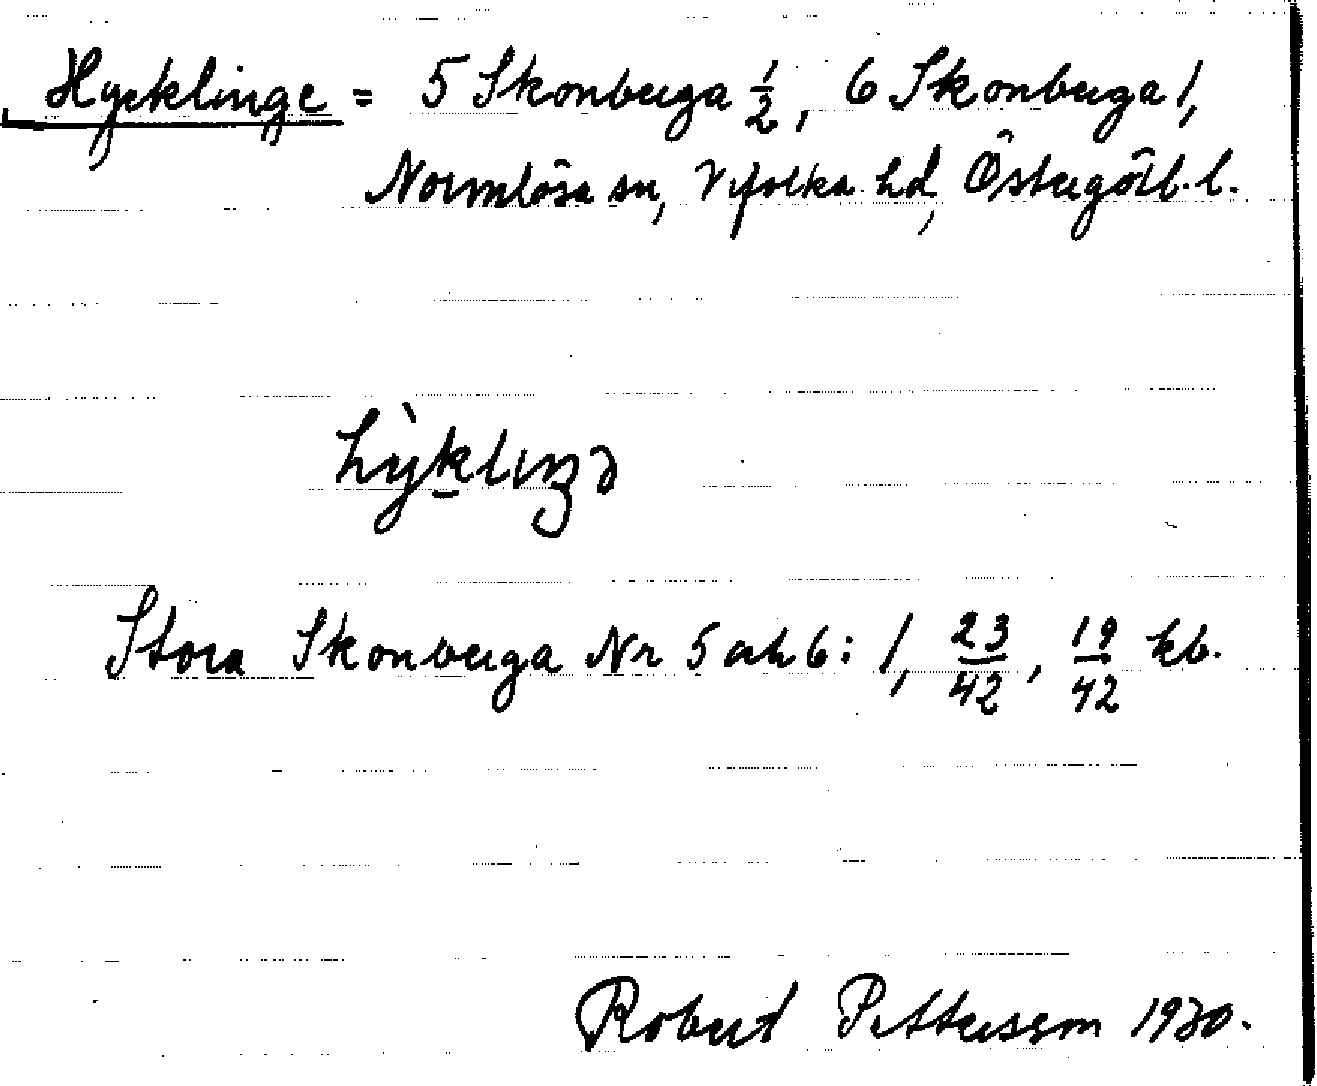 Hycklinge = 5 Skonberga 1/2, 6 Skonberga 1,
Normlösa sn, Vifolka hd, Östergötl. l.
hỳklıŋə
Stora Skonberga Nr 5 och 6: 1, 23/42, 19/42 kb.
Robert Pettersson 1930.